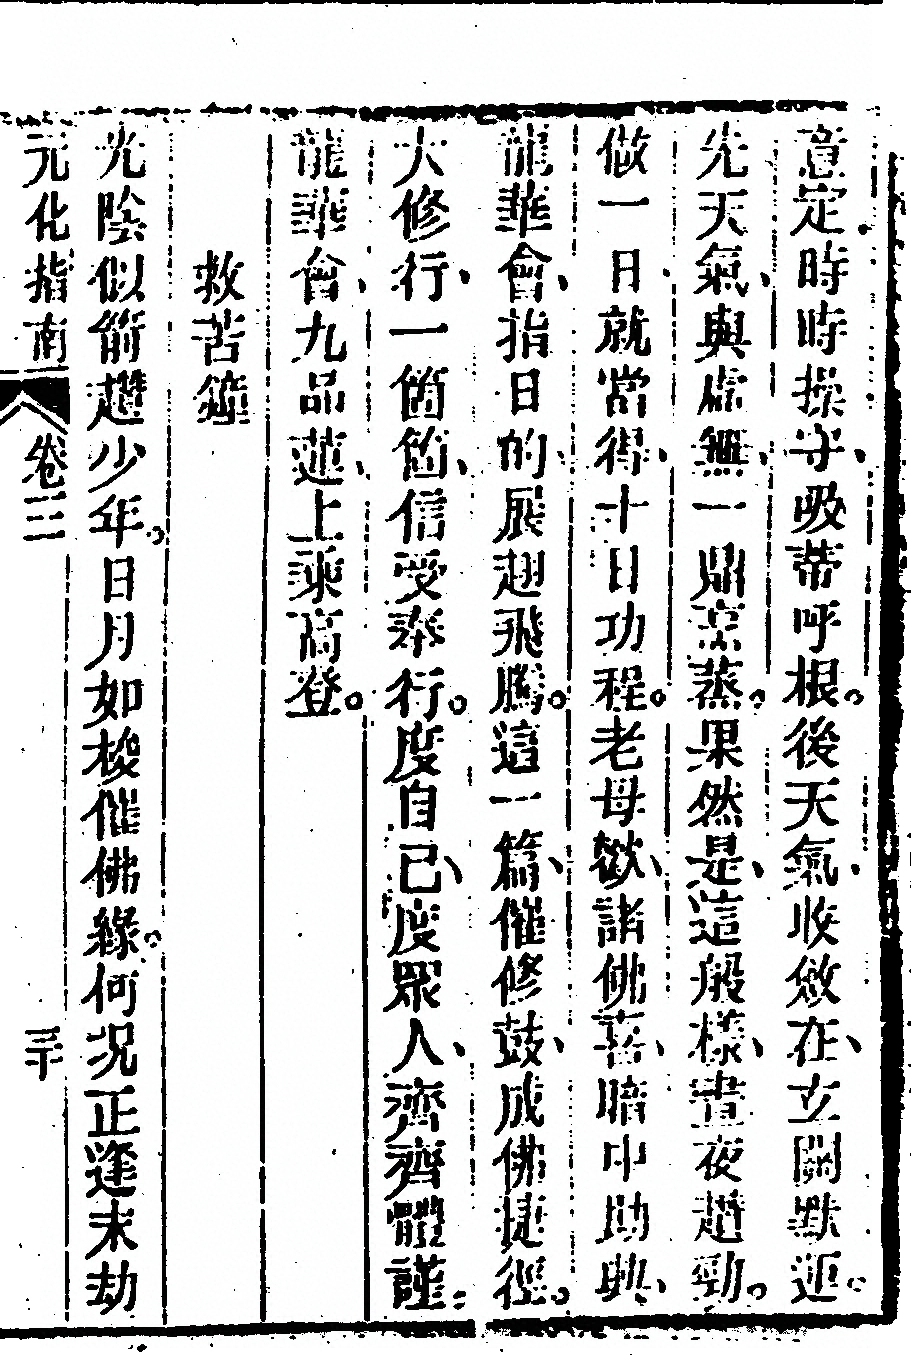 意定時時操守、吸蒂呼根。後天氣、收斂在、立關默運。
先天氣、與虛無、一鼎烹蒸。果然是、這般樣、晝夜趲勁。
做一日、就當得、十日功程。老母歡、諸佛喜、暗中助興、
龍華會、指日的、展翅飛騰。這一篇、催修鼓、成佛捷徑。
大修行、一箇箇、信受奉行。度自己、度眾人、齊齊體謹。
龍華會、九品蓮、上乘高登。
救苦鐘
光陰似箭趲少年。日月如梭催佛緣。何況正逢末劫
元化指南 卷三 三十